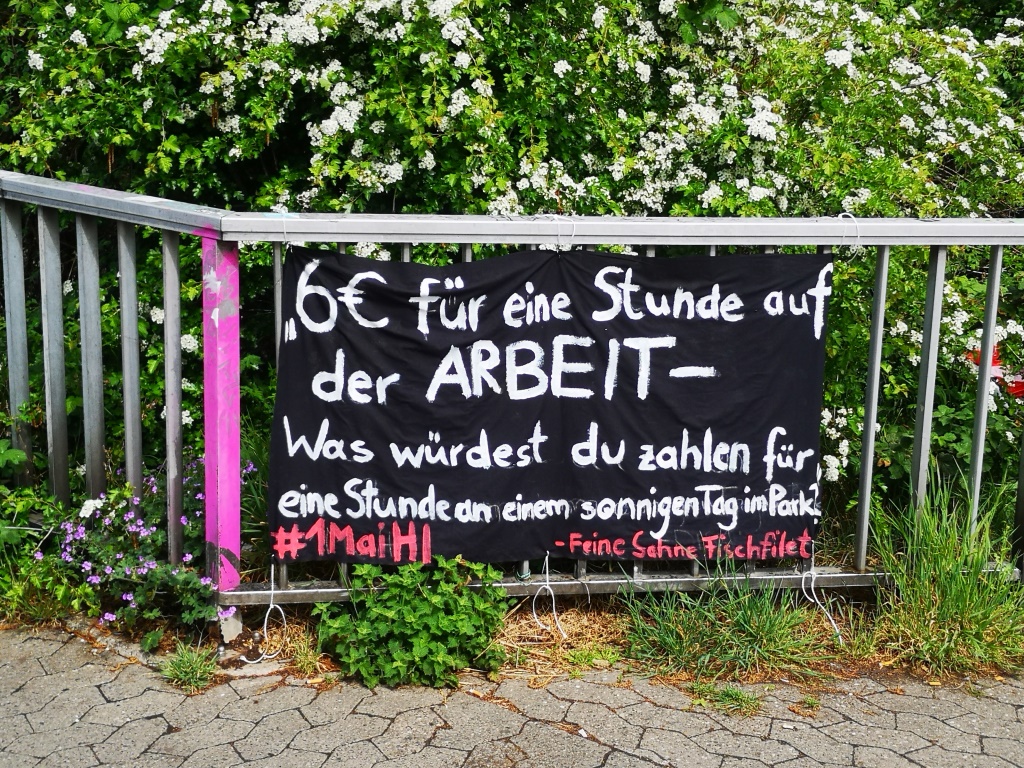 „6€ für eine Stunde auf
der ARBEIT–
Was würdest du zahlen für
eine Stunde an einem sonnigen Tag im Park?
#1MaiHI
-Feine Sahne Fischfilet